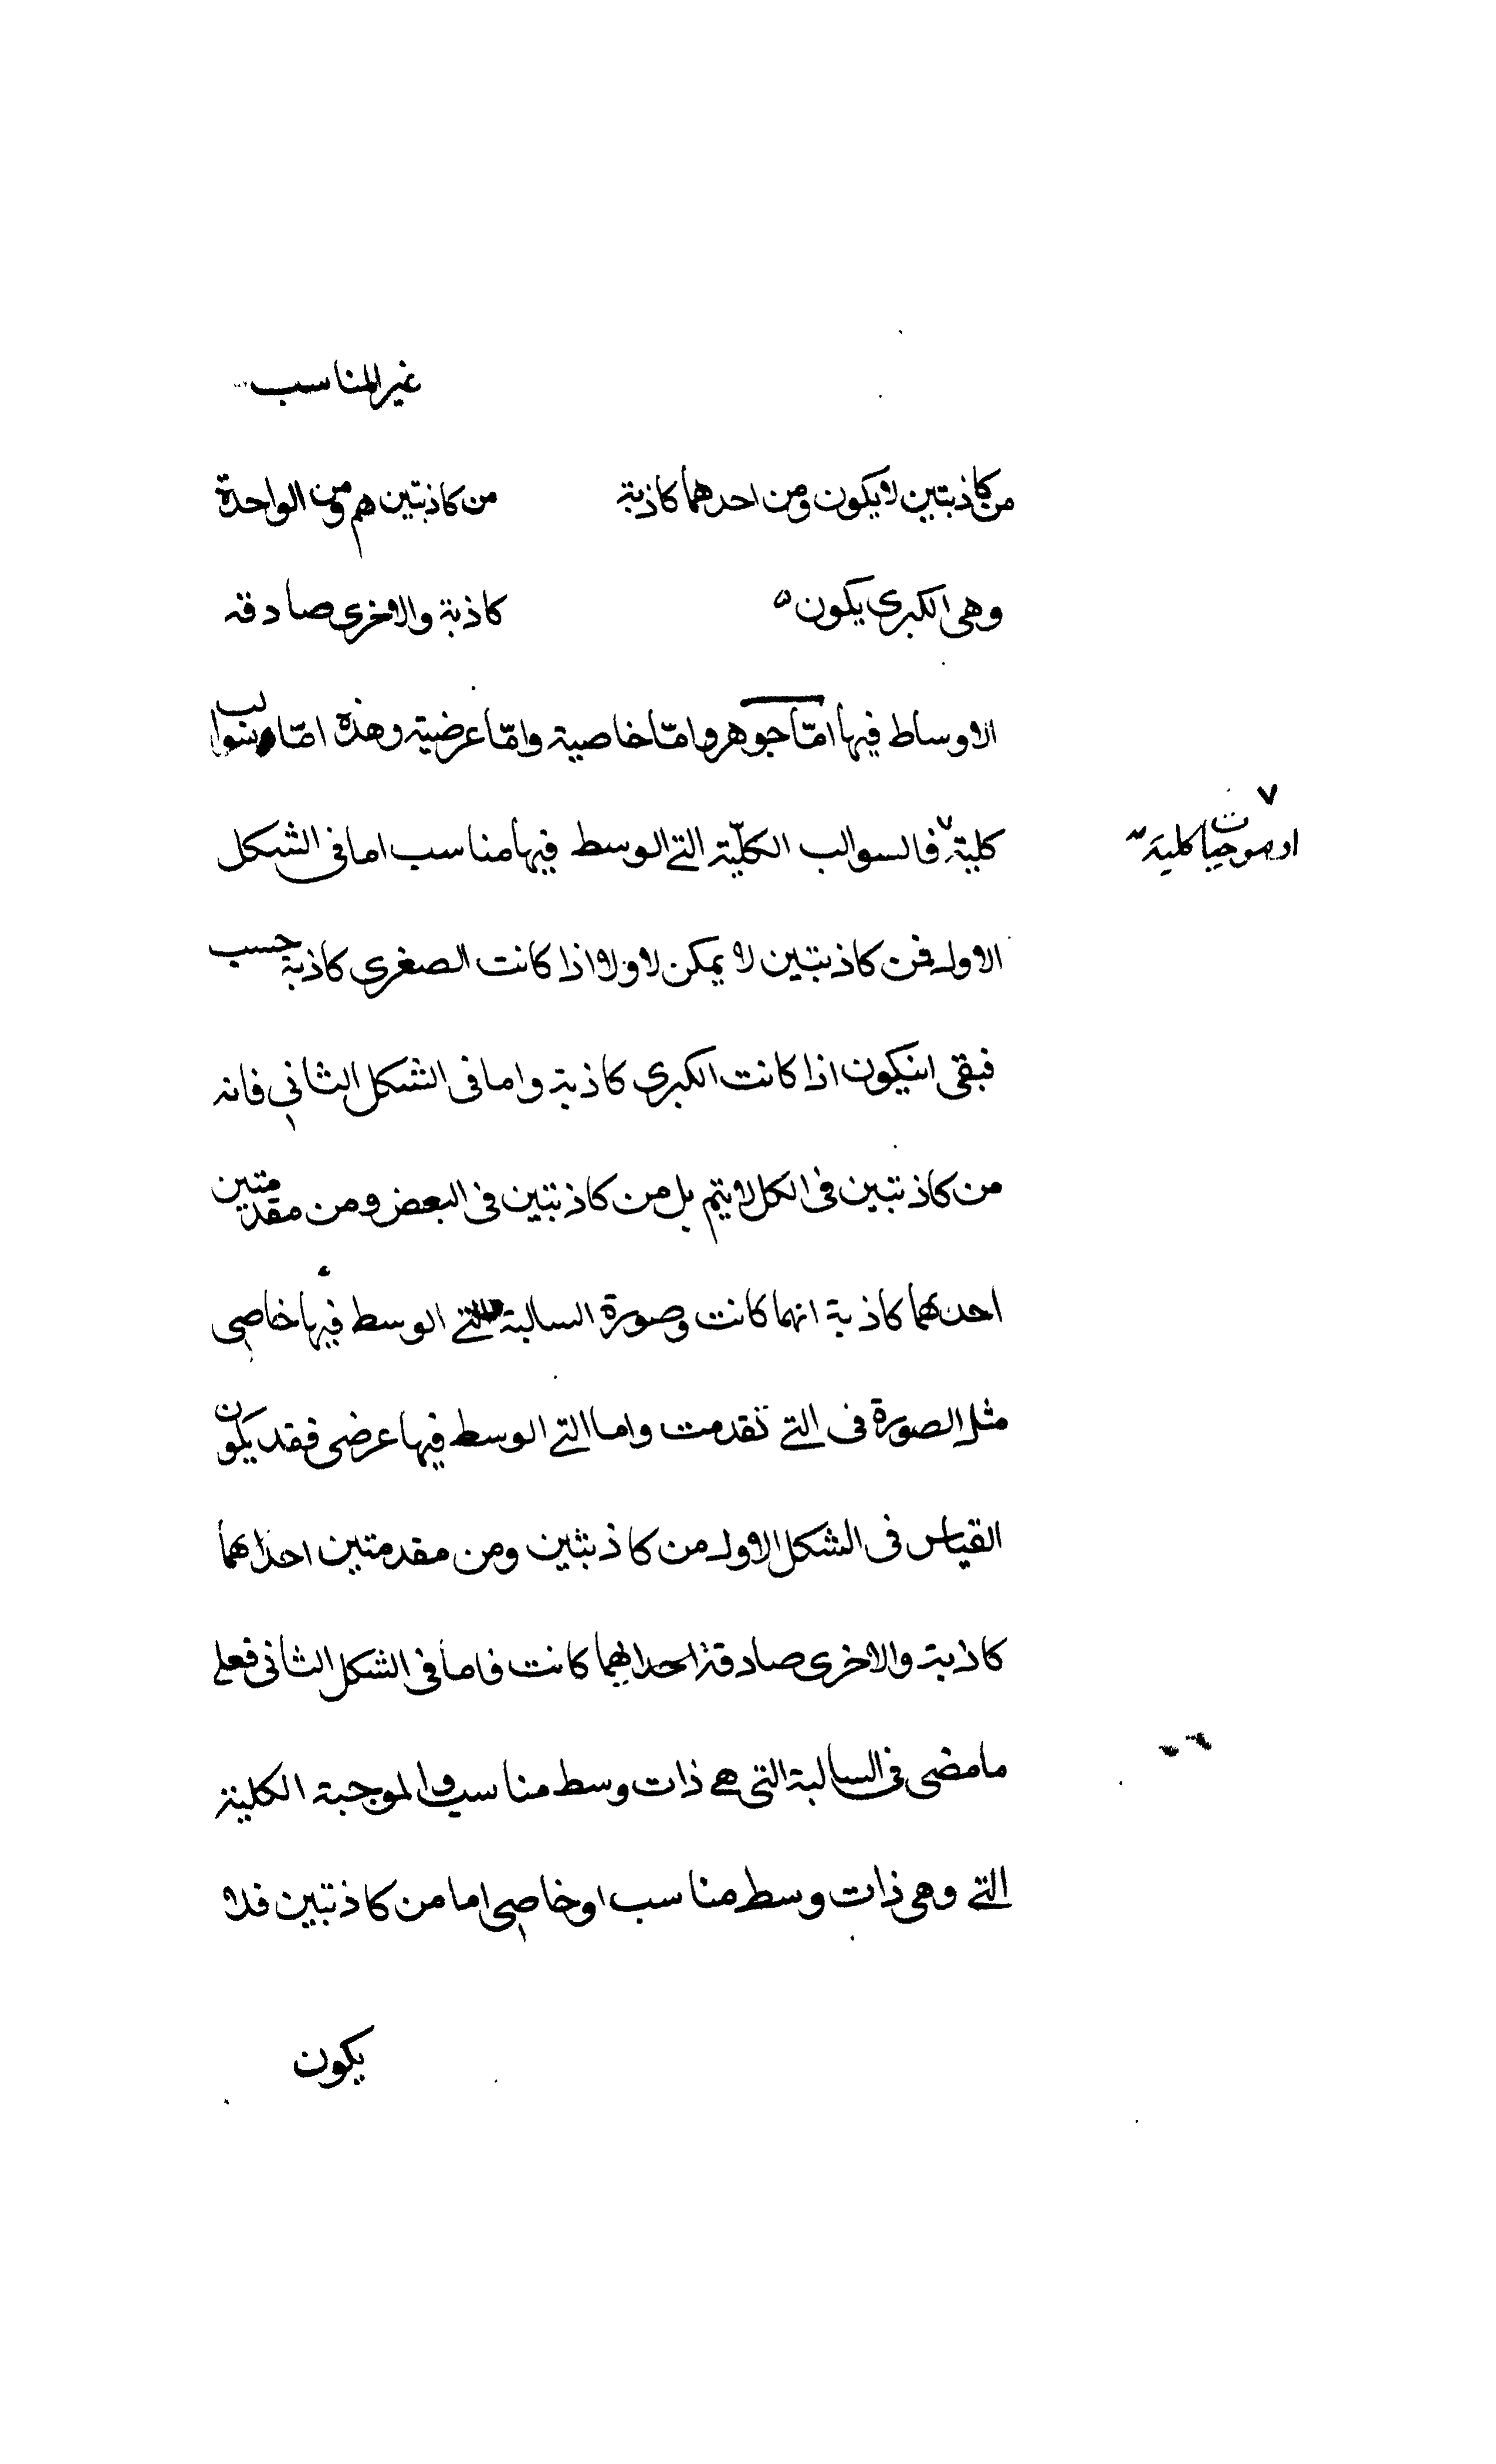 غير المناسب
من كاذبتين لا يكون ومن احدهما كاذبة من كاذبتين هم ومن الواحدة
وهى الكبرى يكون كاذبة والاخرى صادقه
الاوساط فيها امّا جوهر وامّا خاصية وامّا عرضية وهذه امّا سوالب
كلية فالسوالب الكلّية التے الوسط فيها مناسب اما فى الشكل
او موجبات كلية
الاول فمن كاذبتين لا يمكن لا ولا اذا كانت الصغرى كاذبة حسب
فبقى انيكون اذا كانت الكبرى كاذبة واما فى الشكل الثانى فانه
من كاذبتين فى الكل لا يتم بل من كاذبتين فى البعض ومن مقدمتين
احدهما كاذبة انهما كانت وصورة السالبة التے الوسط فيها خاصى
مثل الصورة فى التے تقدمت واما التے الوسط فيها عرضى فقد يكون
القياس فى الشكل الاول من كاذبتين ومن مقدمتين احداهما
كاذبة والاخرى صادقة احدايهما كانت فاما فى الشكل الثانى فعلے
ما مضى فى السالبة التى هے ذات وسط مناسب والموجبة الكلية
التے وهى ذات وسط مناسب او خاصى اما من كاذبتين فلا
يكون